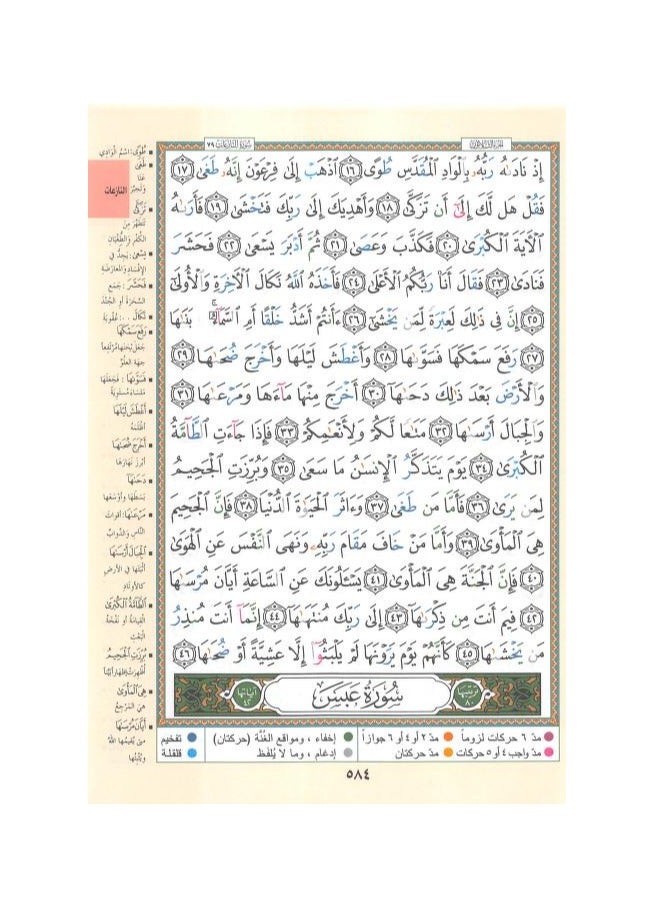 سورة النازعات ٧٩
إِذْ نَادَىٰهُ رَبُّهُۥ بِٱلْوَادِ ٱلْمُقَدَّسِ طُوًى ١٦ ٱذْهَبْ إِلَىٰ فِرْعَوْنَ إِنَّهُۥ طَغَىٰ ١٧
فَقُلْ هَل لَّكَ إِلَىٰٓ أَن تَزَكَّىٰ ١٨ وَأَهْدِيَكَ إِلَىٰ رَبِّكَ فَتَخْشَىٰ ١٩ فَأَرَىٰهُ
ٱلْـَٔايَةَ ٱلْكُبْرَىٰ ٢٠ فَكَذَّبَ وَعَصَىٰ ٢١ ثُمَّ أَدْبَرَ يَسْعَىٰ ٢٢ فَحَشَرَ
فَنَادَىٰ ٢٣ فَقَالَ أَنَا۠ رَبُّكُمُ ٱلْأَعْلَىٰ ٢٤ فَأَخَذَهُ ٱللَّهُ نَكَالَ ٱلْـَٔاخِرَةِ وَٱلْأُولَىٰٓ
٢٥ إِنَّ فِى ذَٰلِكَ لَعِبْرَةً لِّمَن يَخْشَىٰٓ ٢٦ ءَأَنتُمْ أَشَدُّ خَلْقًا أَمِ ٱلسَّمَآءُ ۚ بَنَىٰهَا
٢٧ رَفَعَ سَمْكَهَا فَسَوَّىٰهَا ٢٨ وَأَغْطَشَ لَيْلَهَا وَأَخْرَجَ ضُحَىٰهَا ٢٩
وَٱلْأَرْضَ بَعْدَ ذَٰلِكَ دَحَىٰهَآ ٣٠ أَخْرَجَ مِنْهَا مَآءَهَا وَمَرْعَىٰهَا ٣١
وَٱلْجِبَالَ أَرْسَىٰهَا ٣٢ مَتَٰعًا لَّكُمْ وَلِأَنْعَٰمِكُمْ ٣٣ فَإِذَا جَآءَتِ ٱلطَّآمَّةُ
ٱلْكُبْرَىٰ ٣٤ يَوْمَ يَتَذَكَّرُ ٱلْإِنسَٰنُ مَا سَعَىٰ ٣٥ وَبُرِّزَتِ ٱلْجَحِيمُ
لِمَن يَرَىٰ ٣٦ فَأَمَّا مَن طَغَىٰ ٣٧ وَءَاثَرَ ٱلْحَيَوٰةَ ٱلدُّنْيَا ٣٨ فَإِنَّ ٱلْجَحِيمَ
هِىَ ٱلْمَأْوَىٰ ٣٩ وَأَمَّا مَنْ خَافَ مَقَامَ رَبِّهِۦ وَنَهَى ٱلنَّفْسَ عَنِ ٱلْهَوَىٰ
٤٠ فَإِنَّ ٱلْجَنَّةَ هِىَ ٱلْمَأْوَىٰ ٤١ يَسْـَٔلُونَكَ عَنِ ٱلسَّاعَةِ أَيَّانَ مُرْسَىٰهَا
٤٢ فِيمَ أَنتَ مِن ذِكْرَىٰهَآ ٤٣ إِلَىٰ رَبِّكَ مُنتَهَىٰهَآ ٤٤ إِنَّمَآ أَنتَ مُنذِرُ
مَن يَخْشَىٰهَا ٤٥ كَأَنَّهُمْ يَوْمَ يَرَوْنَهَا لَمْ يَلْبَثُوٓا۟ إِلَّا عَشِيَّةً أَوْ ضُحَىٰهَا ٤٦
ترتيبها ٨٠
سُورَةُ عَبَسَ
آياتها ٤٢
طُوًى: اسم الوادي
طَغَى
النازعات
تَزَكَّى
تتطهر من
الكفر والطغيان
يَسْعَى: يجدّ في
الإفساد والمعارضة
فَحَشَرَ: جمع
السحرة أو الجند
نَكَالَ..: عقوبة
رَفَعَ سَمْكَهَا
جهة العلو
فَسَوَّاهَا: فجعلها
ملساء مستوية
أَغْطَشَ لَيْلَهَا
أظلمه
أَخْرَجَ ضُحَاهَا
أبرز نهارها
دَحَاهَا
بسطها وأوسعها
مَرْعَاهَا: أقوات
الناس والدواب
الْجِبَالَ أَرْسَاهَا
أثبتها في الأرض
كالأوتاد
الطَّامَّةُ الْكُبْرَى
القيامة أو نفخة
البعث
بُرِّزَتِ الْجَحِيمُ
أظهرت إظهارا بيّنا
هِيَ الْمَأْوَى
هي المرجع
أَيَّانَ مُرْسَاهَا
متى يقيمها الله
ويثبتها
مدّ ٦ حركات لزوماً مدّ ٢ أو ٤ أو ٦ جوازاً إخفاء ، ومواقع الغُنَّة (حركتان) تفخيم
مدّ واجب ٤ أو ٥ حركات مدّ حركتان إدغام ، وما لا يُلفظ قلقلة
٥٨٤